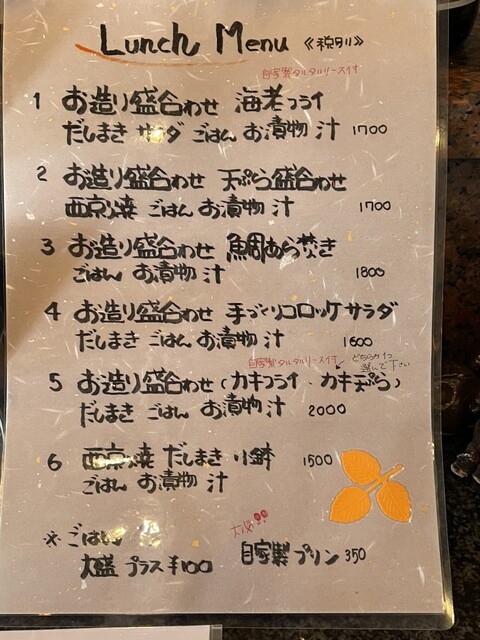 Lunch Menu 《税別》
自家製タルタルソース付
1 お造り盛合わせ 海老フライ
だしまき サラダ ごはん お漬物 汁 1700
2 お造り盛合わせ 天ぷら盛合わせ
西京焼 ごはん お漬物 汁 1700
3 お造り盛合わせ 鯛あら焚き
ごはん お漬物 汁 1800
4 お造り盛合わせ 手づくりコロッケサラダ
だしまき ごはん お漬物 汁 1600
自家製タルタルソース付 どちらか1つ
選んで下さい
5 お造り盛合わせ(カキフライ・カキ天ぷら)
だしまき ごはん お漬物 汁 2000
6 西京焼 だしまき 小鉢 1500
ごはん お漬物 汁
※ごはん
大盛 プラス¥100
自家製プリン 350